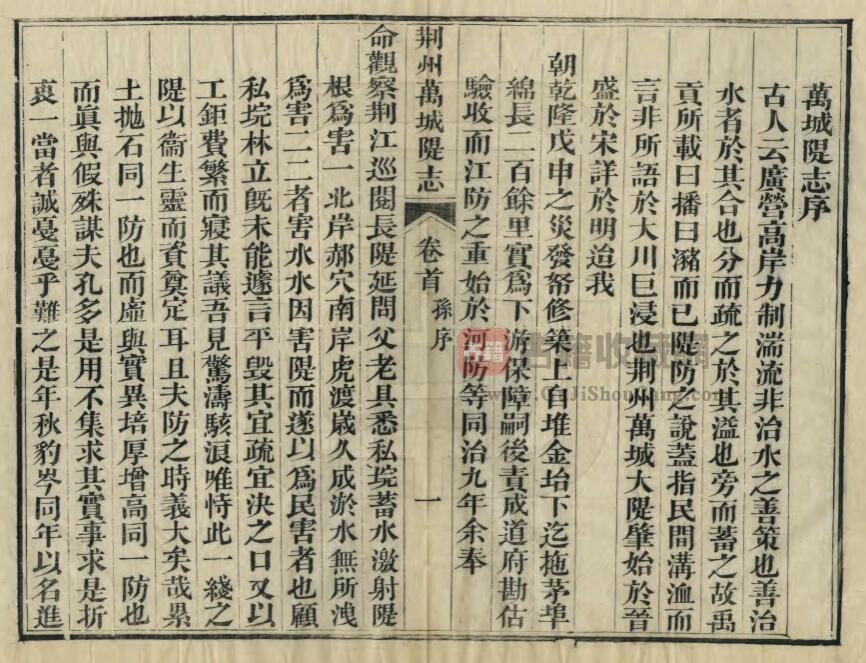 萬城隄志序
古人云廣營高岸力制湍流非治水之善策也善治
水者於其合也分而疏之於其溢也旁而蓄之故禹
貢所載曰播曰瀦而已隄防之說蓋指民間溝洫而
言非所語於大川巨浸也荆州萬城大隄肇始於晉
盛於宋詳於明迨我
朝乾隆戊申之災發帑修築上自堆金坮下迄拖茅埠
綿長二百餘里實爲下游保障嗣後責成道府勘估
驗收而江防之重始於河防等同治九年余奉
荆州萬城隄志
卷首 孫序
一
命觀察荆江巡閱長隄延問父老具悉私垸蓄水激射隄
根爲害一北岸郝穴南岸虎渡歲久成淤水無所洩
爲害二二者害水水因害隄而遂以爲民害者也顧
私垸林立旣未能遽言平毀其宜疏宜決之口又以
工鉅費繁而寢其議吾見驚濤駭浪唯恃此一綫之
隄以衞生靈而資奠定耳且夫防之時義大矣哉累
土拋石同一防也而虛與實異培厚增高同一防也
而眞與假殊謀夫孔多是用不集求其實事求是折
衷一當者誠戞戞乎難之是年秋豹岑同年以名進